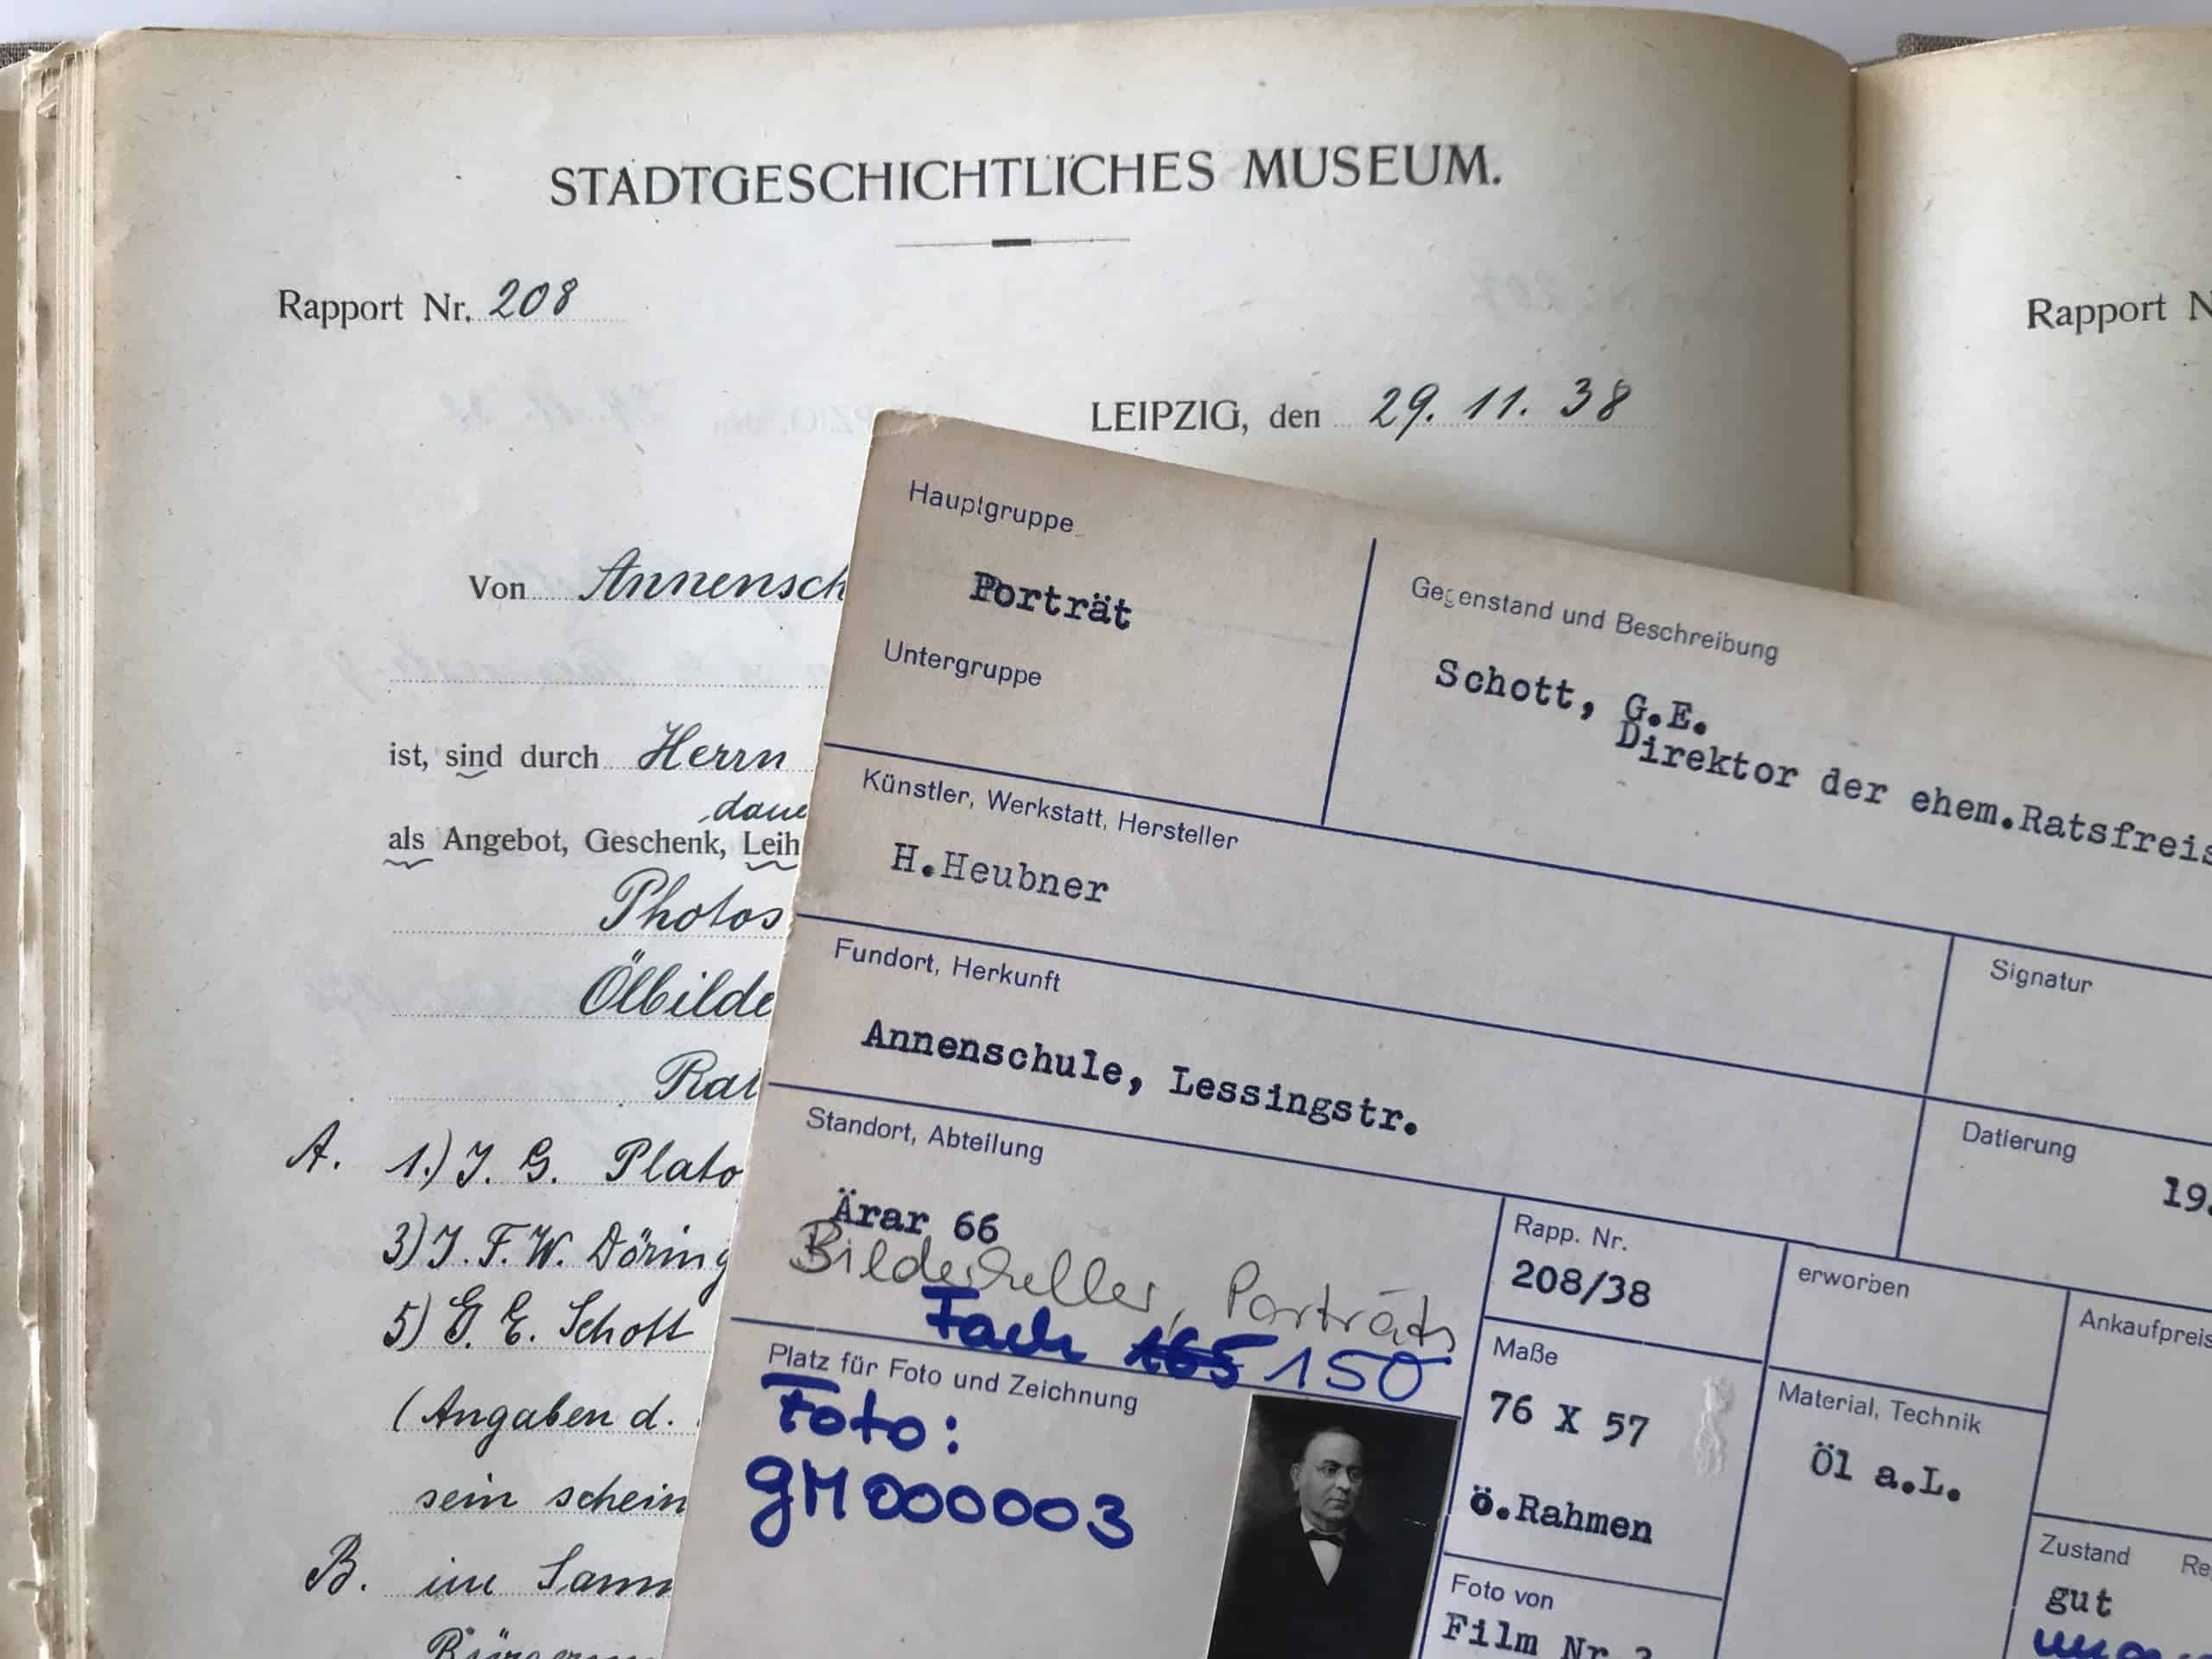 STADTGESCHICHTLICHES MUSEUM.
Rapport Nr. 208
Rapport N
LEIPZIG, den 29. 11. 38
Von Annensch
ist, sind durch Herrn
daue
als Angebot, Geschenk, Leih
Photos
Ölbilde
Rat
A. 1.) J. G. Plato
3) J. F. W. Döring
5) G. E. Schott
(Angaben d.
sein schein
B. im Samm
Bürgerm
Hauptgruppe
Porträt
Untergruppe
Gegenstand und Beschreibung
Schott, G.E.
Direktor der ehem.Ratsfreis
Künstler, Werkstatt, Hersteller
H.Heubner
Signatur
Fundort, Herkunft
Annenschule, Lessingstr.
Datierung
19
Standort, Abteilung
Ärar 66
Bilderkeller, Porträts
Fach 165 150
Rapp. Nr.
208/38
erworben
Ankaufpreis
Platz für Foto und Zeichnung
Foto:
GM000003
Maße
76 X 57
ö.Rahmen
Material, Technik
Öl a.L.
Foto von
Film Nr
Zustand Re
gut